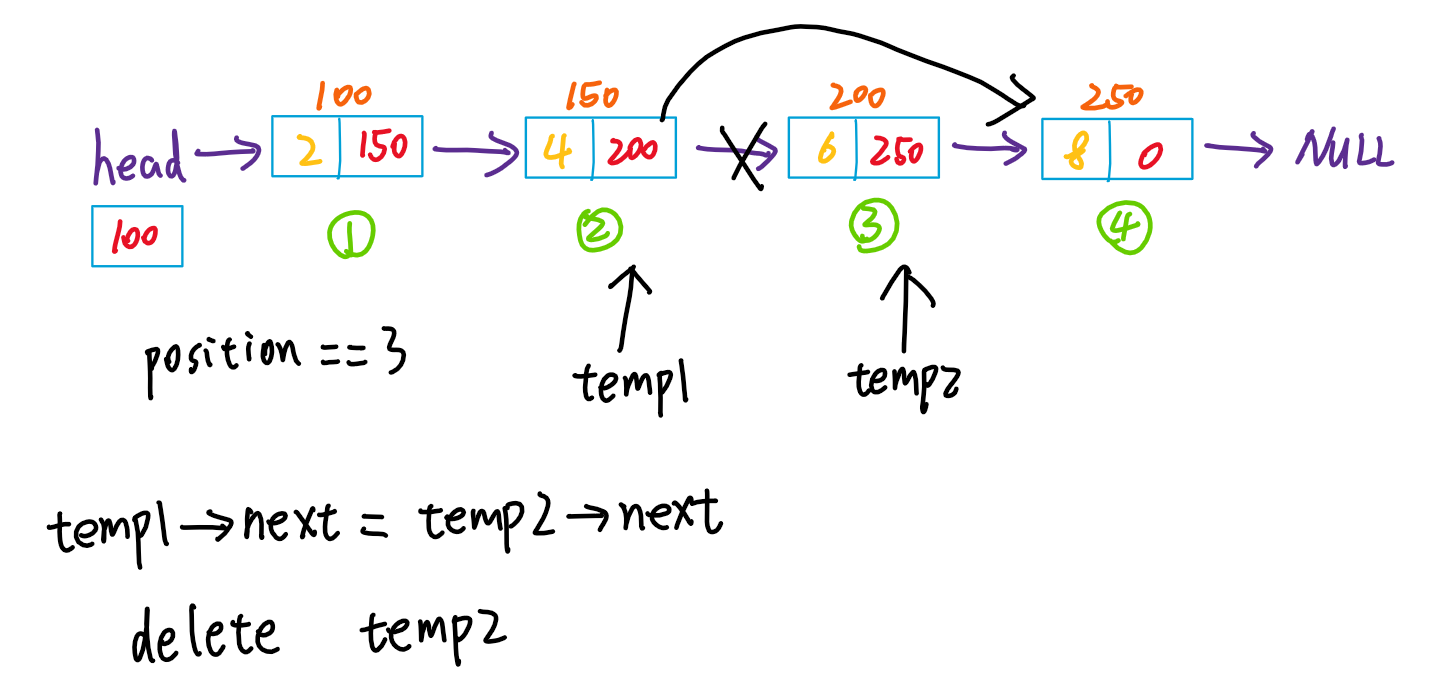 100 150 200 250
head → 2 150 → 4 200 → 6 250 → 8 0 → NULL
100 ① ② ③ ④
position == 3
temp1 temp2
temp1→next = temp2→next
delete temp2